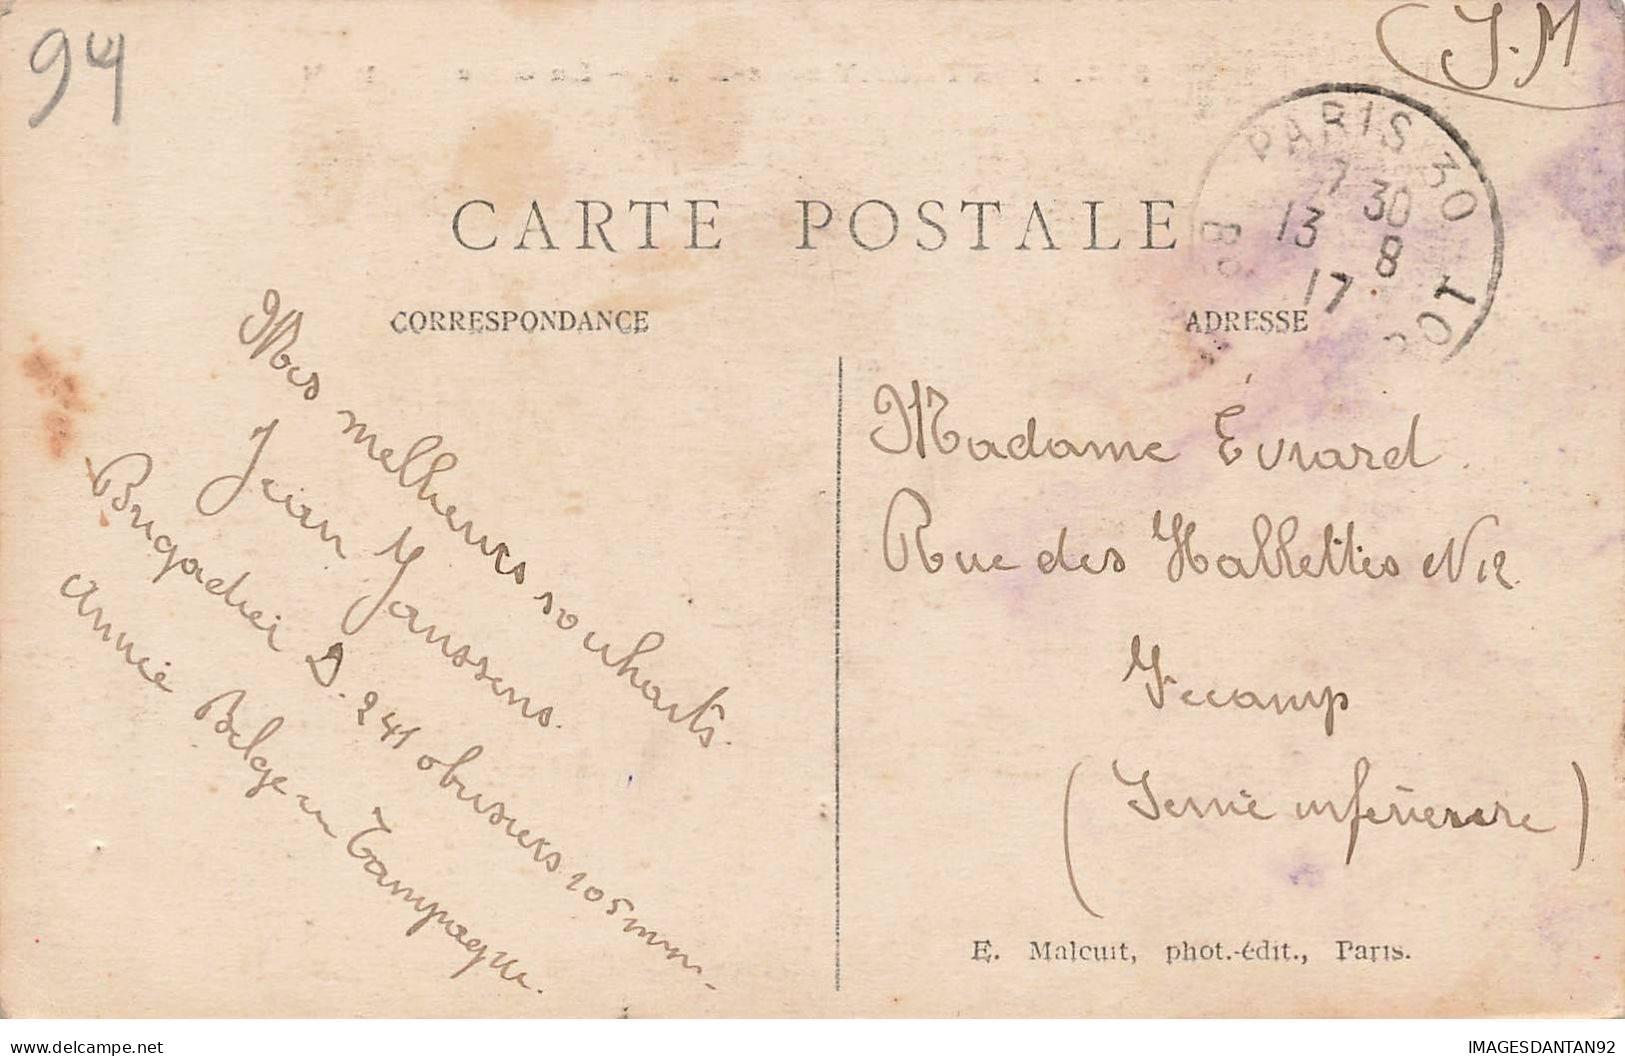 94
(J.M
PARIS 30
7 30
13 8
17
CARTE POSTALE
CORRESPONDANCE
ADRESSE
Mes melheurs souhaits.
Jean Janssens.
Brigadier D. 241 obusiers 105 mm.
Armée Belge en Campagne.
Madame Evrard.
Rue des Halletles N 12.
Fecamp
(Seine inférieure)
E. Malcuit, phot.-édit., Paris.
IMAGESDANTAN92
delcampe.net